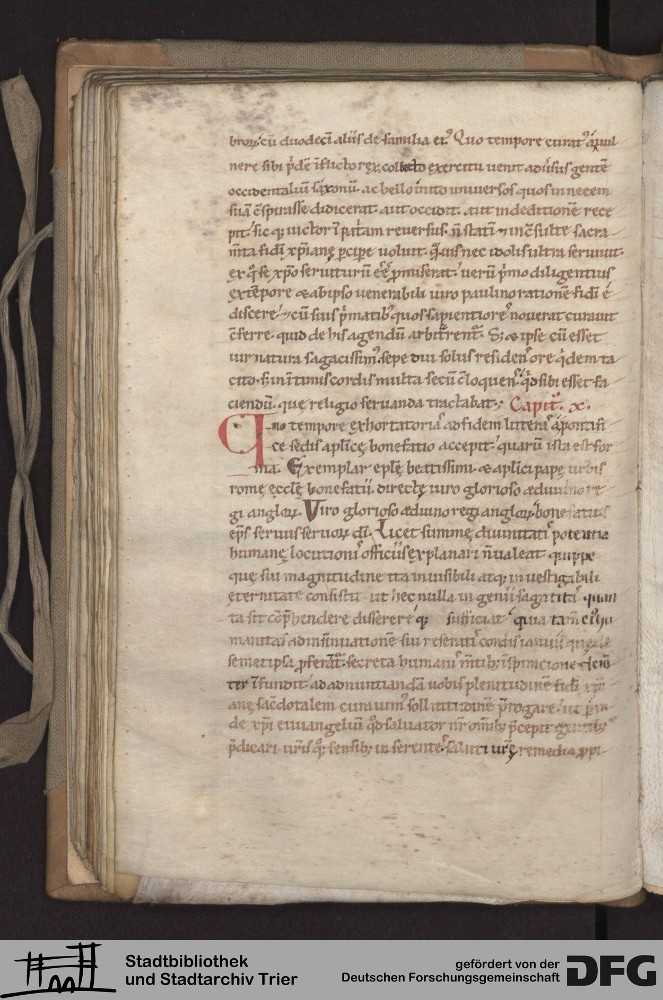 brorū cū duodeci aliis de familia ei' Quo tempore curat' a uul
nere sibi p̄de īflicto rex collecto exercitu uenit aduersus gente
occidentaliū saxonū ac bello inito uniuersos quos in necem
suā c̄spirasse didicerat aut occidit aut in deditionē rece
pit sicq; uictor ī patriam reuersus n̄ statī īc̄sulte sacra
m̄ta fidei xp̄ianę p̄cipe uoluit quis nec idolis ultra seruiuit
ex q̊ se xp̄o seruiturū ēē p̄miserat uerū p̄mo diligentius
ex tēpore & ab ipso uenerabili uiro paulino rationē fidei ē
discere cū suis p̄matib; quos sapientiores nouerat curauit
c̄ferre quid de his agendū arbitrent' S; & ipse cū esset
uir natura sagacissim' sepe diu solus residens ore q̊dem ta
cito s; in ītimis cordis multa secū c̄loquens q̊d sibi esset fa
ciendū que religio seruanda tractabat Capit' x.
Quo tempore exhortatorias ad fidem litteras a pontifi
ce sedis aplicę bonefatio accepit quarū ista est for
ma. Exemplar eplę beatissimi & aplici papę urbis
romę ęcclę bonefatii directę uiro glorioso ædiuino re
gi anglorū Viro glorioso ædiuino regi anglorū bonefatius
ep̄s seruus seruorū di Licet summę diuinitatis potentia
humanę locutionis officiis explanari n̄ ualeat quippe
quę sui magnitudine ita inuisibili atq; inuestigabili
ęternitate consistit ut hec nulla ingenii sagatitas quan
ta sit c̄p̄hendere disserere q; sufficiat quia tam̄ ei' hu
manitas ad insinuationē sui reseratis cordis ianuis que de
semetipsa secreta humanis m̄tib; inspiracione clem̄
ter īfundit ad adnuntiandā uobis plenitudinē fidei xp̄i
anę sacdotalem curauim' sollicitudinē p̄rogare ut
de xp̄i euuangelium q̊d saluator n̄r omīb; p̄cepit gentib;
p̄dicari uris q; sensib; inserentes salutis urę remedia
Stadtbibliothek
und Stadtarchiv Trier
gefördert von der
Deutschen Forschungsgemeinschaft
DFG